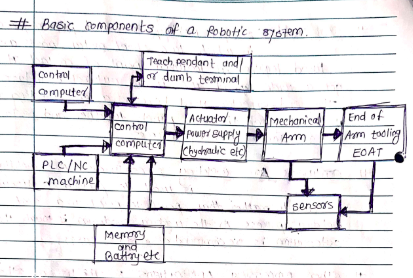 # Basic components of a Robotic system.
Teach pendant and/
or dumb terminal
control
computer
control
computer
Actuator
power supply
(hydraulic etc)
Mechanical
Arm
End of
Arm tooling
EOAT
PLC/NC
machine
Sensors
Memory
and
Battry etc